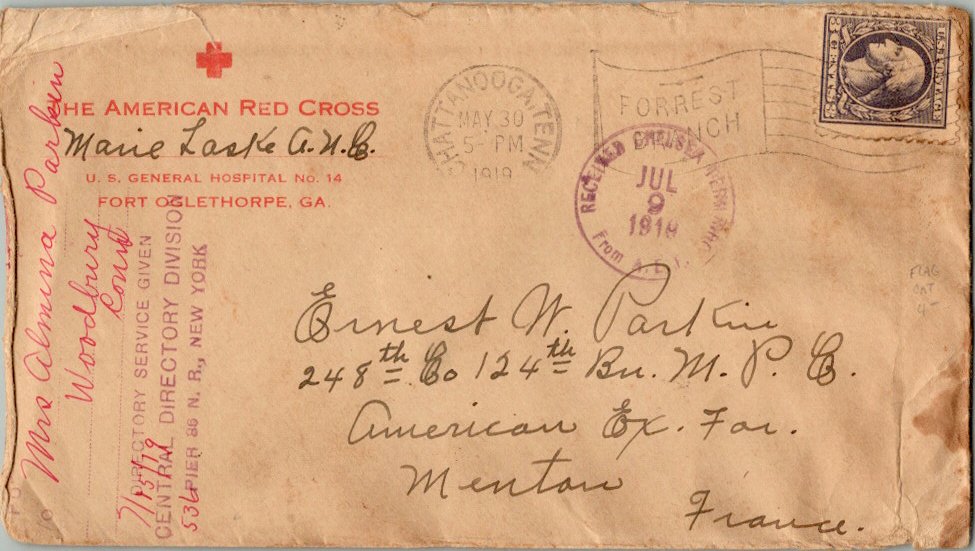 THE AMERICAN RED CROSS
Marie Laske A.N.C.
U. S. GENERAL HOSPITAL NO. 14
FORT OGLETHORPE, GA.
CHATTANOOGA, TENN
MAY 30
5- PM
1919
FORREST
RECEIVED CHELSEA
JUL
9
1919
From A.E.F.
U.S. POSTAGE
Ernest W. Parkin
248th Co 124th Bn. M. P. C.
American Ex. For.
Menton
France.
Mrs Almina Parkin
Woodbury
Conn
DIRECTORY SERVICE GIVEN
7/15/19
CENTRAL DIRECTORY DIVISION
536 PIER 86 N. R., NEW YORK
FLAG
CAT
4-